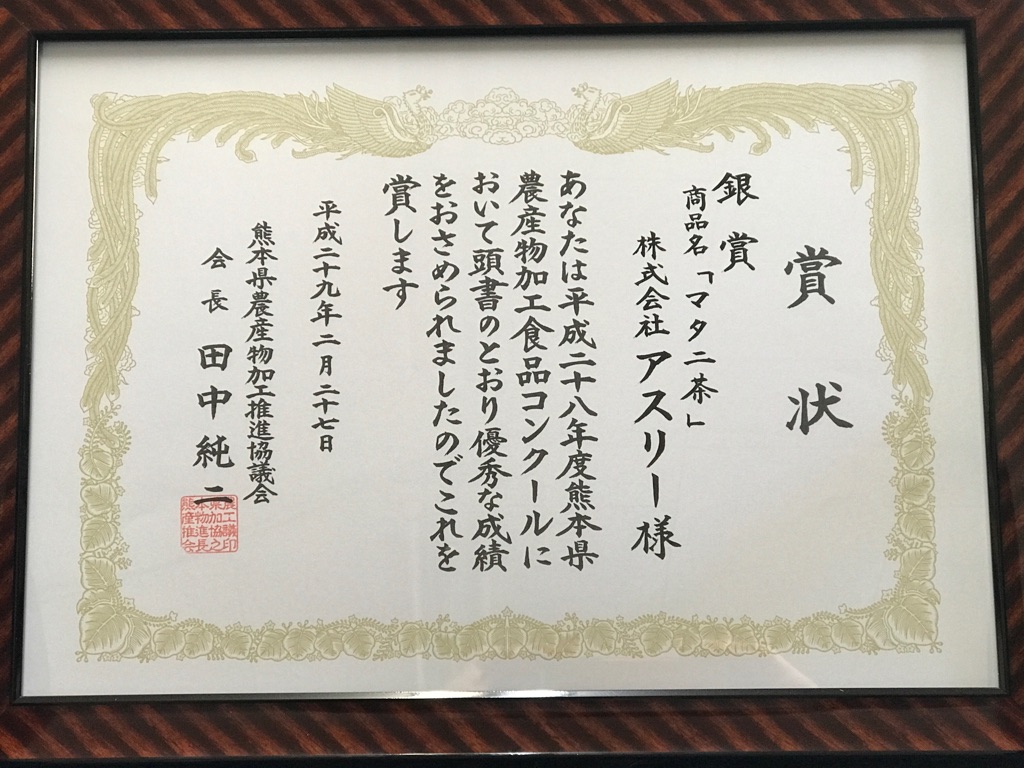 賞状
銀賞
商品名「マタニ茶」
株式会社アスリー様
あなたは平成二十八年度熊本県
農産物加工食品コンクールに
おいて頭書のとおり優秀な成績
をおさめられましたのでこれを
賞します
平成二十九年二月二十七日
熊本県農産物加工推進協議会
会長 田中純二